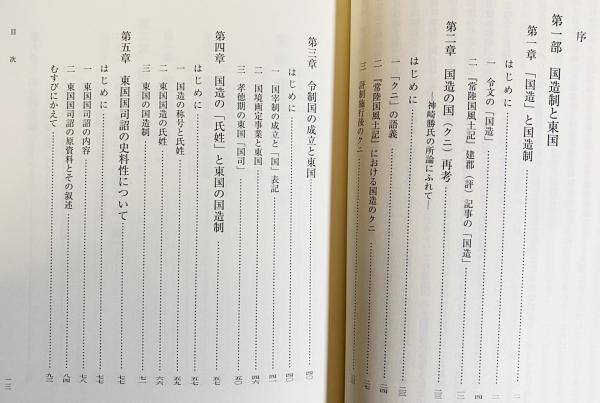 序
第一部　国造制と東国
第一章　「国造」と国造制
はじめに
一　令文の「国造」
二　『常陸国風土記』建郡（評）記事の「国造」
第二章　国造の国（クニ）再考
―神崎勝氏の所論にふれて―
はじめに
一　「クニ」の語義
二　『常陸国風土記』における国造のクニ
三　評制施行後のクニ
第三章　令制国の成立と東国　四〇
はじめに　四〇
一　国宰制の成立と「国」表記　四一
二　国境画定事業と東国　四六
三　孝徳期の東国「国司」　五〇
第四章　国造の「氏姓」と東国の国造制　五七
はじめに　五七
一　国造の称号と氏姓　五九
二　東国国造の氏姓　六六
三　東国の国造制　七一
第五章　東国国司詔の史料性について　七七
はじめに　七七
一　東国国司詔の内容　七八
二　東国国司詔の原資料とその叙述　八四
むすびにかえて　九二
目次
一三